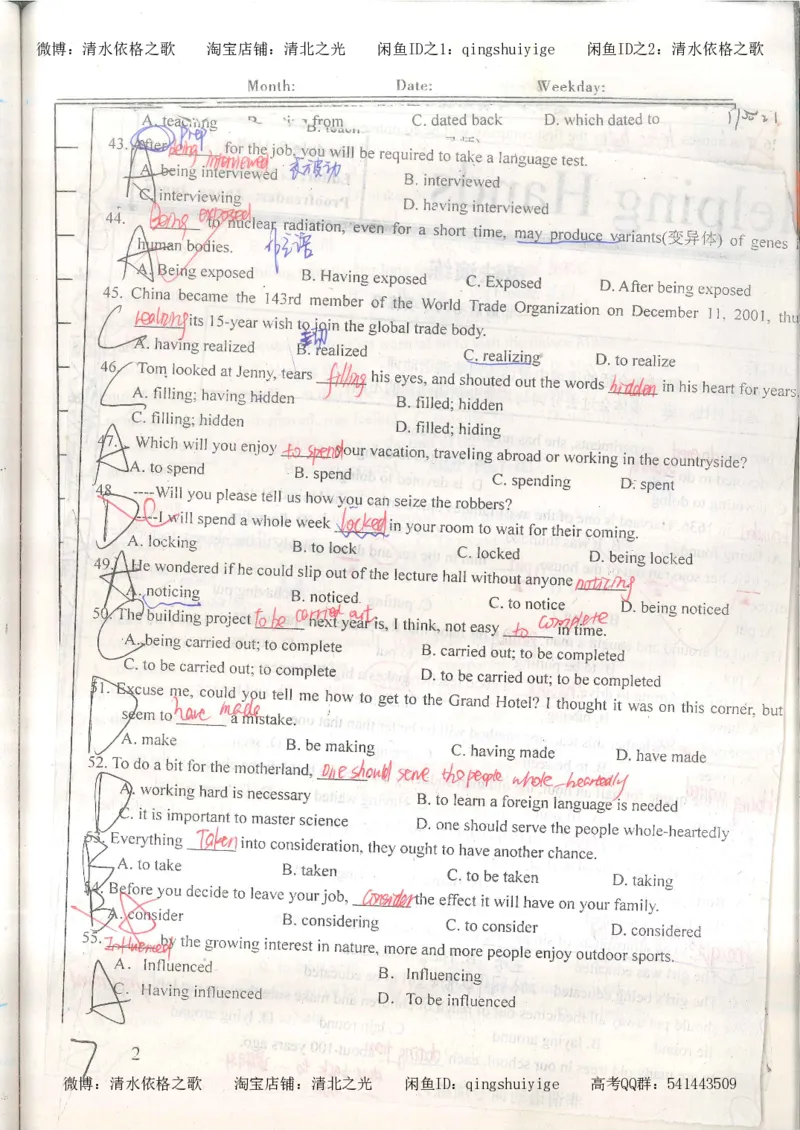 微博：清水依格之歌 淘宝店铺：清北之光 闲鱼ID之1：qingshuiyige 闲鱼ID之2：清水依格之歌
Month: Date: Weekday:
A. teaching from C. dated back D. which dated to
prep
43. After being interviewed for the job, you will be required to take a language test.
A. being interviewed 表示被动 B. interviewed
C. interviewing D. having interviewed
44. Being exposed to nuclear radiation, even for a short time, may produce variants(变异体) of genes
human bodies. 作主语
A. Being exposed B. Having exposed C. Exposed D. After being exposed
45. China became the 143rd member of the World Trade Organization on December 11, 2001, thu
realizing its 15-year wish to join the global trade body.
A. having realized B. realized C. realizing D. to realize
46. Tom looked at Jenny, tears filling his eyes, and shouted out the words hidden in his heart for years.
A. filling; having hidden B. filled; hidden
C. filling; hidden D. filled; hiding
47. Which will you enjoy to spend our vacation, traveling abroad or working in the countryside?
A. to spend B. spend C. spending D. spent
48. ----Will you please tell us how you can seize the robbers?
----I will spend a whole week locked in your room to wait for their coming.
A. locking B. to lock C. locked D. being locked
49. He wondered if he could slip out of the lecture hall without anyone noticing
A. noticing B. noticed C. to notice D. being noticed
50. The building project to be carried out next year is, I think, not easy to complete in time.
A. being carried out; to complete B. carried out; to be completed
C. to be carried out; to complete D. to be carried out; to be completed
51. Excuse me, could you tell me how to get to the Grand Hotel? I thought it was on this corner, but
seem to have made a mistake.
A. make B. be making C. having made D. have made
52. To do a bit for the motherland, one should serve the people whole-heartedly
A. working hard is necessary B. to learn a foreign language is needed
C. it is important to master science D. one should serve the people whole-heartedly
53. Everything Taken into consideration, they ought to have another chance.
A. to take B. taken C. to be taken D. taking
54. Before you decide to leave your job, consider the effect it will have on your family.
A. consider B. considering C. to consider D. considered
55. Influenced by the growing interest in nature, more and more people enjoy outdoor sports.
A. Influenced B. Influencing
C. Having influenced D. To be influenced
2
微博：清水依格之歌 淘宝店铺：清北之光 闲鱼ID：qingshuiyige 高考QQ群：541443509